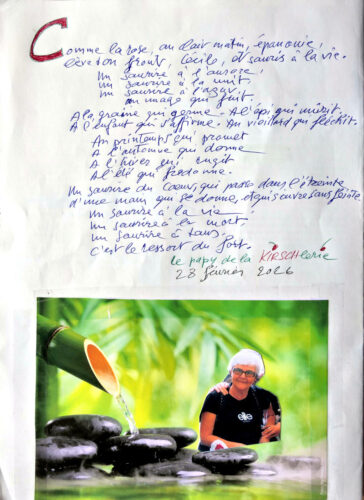 Comme la rose, au clair matin, épanouie,
lève ton front, Cécile, et souris à la vie.
Un sourire à l'aurore,
Un sourire à la nuit,
Un sourire à l'azur,
au nuage qui fuit.
A la graine qui germe. A l'épi qui mûrit.
A l'enfant qui s'affirme. Au vieillard qui fléchit.
Au printemps qui promet
A l'automne qui donne
A l'hiver qui rugit
A l'été qui pardonne.
Un sourire du Coeur, qui passe dans l'étreinte
d'une main qui se donne, et qui s'ouvre sans feinte
Un sourire à la vie
Un sourire à la mort
Un sourire à tous.
C'est le ressort du fort.
Le papy de la KIRSCHlerie
28 février 2026
elle